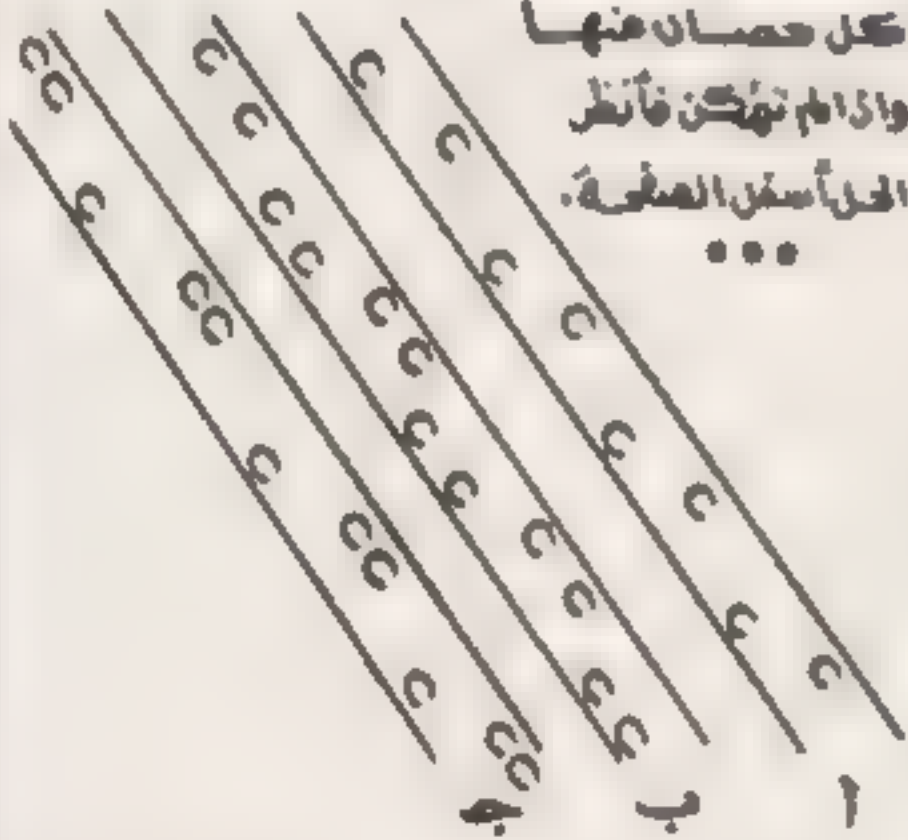 كل حصان منها
واذا لم تتمكن فأنظر
الحل أسفل الصفحة.
أ
ب
جـ